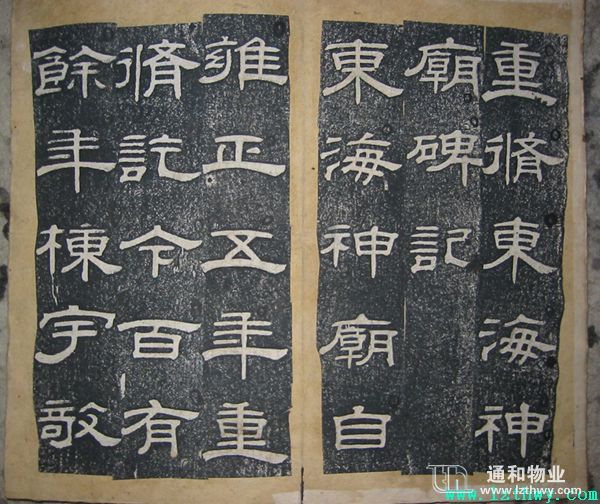 重脩東海神
廟碑記
東海神廟自
雍正五年重
脩訖今百有
餘年棟宇敧
通和物业
www.lzthwy.com
www.lzthwy.com